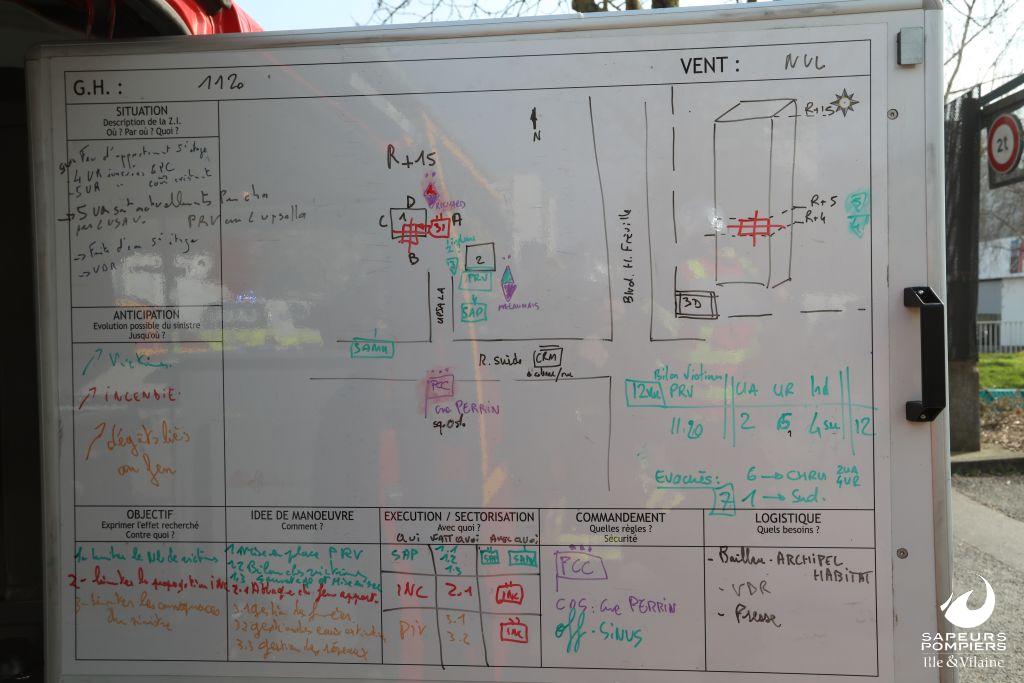 G.H. : 1120
VENT : NUL
SITUATION
Description de la Z.I.
Où ? Par où ? Quoi ?
Feu d'appartement 5e étage
4 UR
5 UR
→ 5 UR
PRV rue Upsalla
→ Fuite d'eau 5e étage
→ VDR
ANTICIPATION
Evolution possible du sinistre
Jusqu'où ?
Victimes
INCENDIE
dégâts liés
au feu
N
R+15
RICHARD
D
C
1
A
B
2
PRV
SAP
UPSALA
SAMU
R. suède
CRM
PCC
cne PERRIN
Blvd. H. Fréville
R+15
R+5
R+4
3D
Bilan Victimes
PRV UA UR
11.20 2 5 12
Evacués : 6 → CHRU 2UA
4UR
7 1 → Sud.
OBJECTIF
Exprimer l'effet recherché
Contre quoi ?
1- Limiter le Nb de victimes
2- Limiter la propagation INC
3- Limiter les conséquences
du sinistre
IDEE DE MANOEUVRE
Comment ?
1.1 Mise en place PRV
1.2 Bilan des victimes
2.1 Attaque du feu appart.
3.1 gestion des fumées
3.2 gestion des eaux
3.3 gestion des réseaux
EXECUTION / SECTORISATION
Avec quoi ?
Qui FAIT quoi AVEC quoi
SAP 1.1 1.2 1.3 SAP SAMU
INC 2.1 INC
DIV 3.1 3.2 INC
COMMANDEMENT
Quelles règles ?
Sécurité
PCC
COS : cne PERRIN
off. SINUS
LOGISTIQUE
Quels besoins ?
- Bailleur - ARCHIPEL
HABITAT
- VDR
- Presse
2t
SAPEURS
POMPIERS
Ille & Vilaine